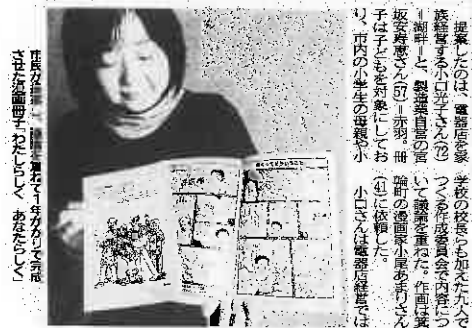 提案したのは、電器店を家
族経営する小口元子さん(76)
=湖畔=と、製造業自営の宮
坂安寿恵さん(57)=赤羽。冊
子は子どもを対象にしてお
り、市内の小学生の母親や小
学校の校長らも加えた九人で
つくる作成委員会で内容につ
いて議論を重ねた。作画は箕
輪町の漫画家小尾あまりさん
(41)に依頼した。
小口さんは電器店経営では
重ねて1年がかりで完成
させた漫画冊子「わたしらしく あなたらしく」